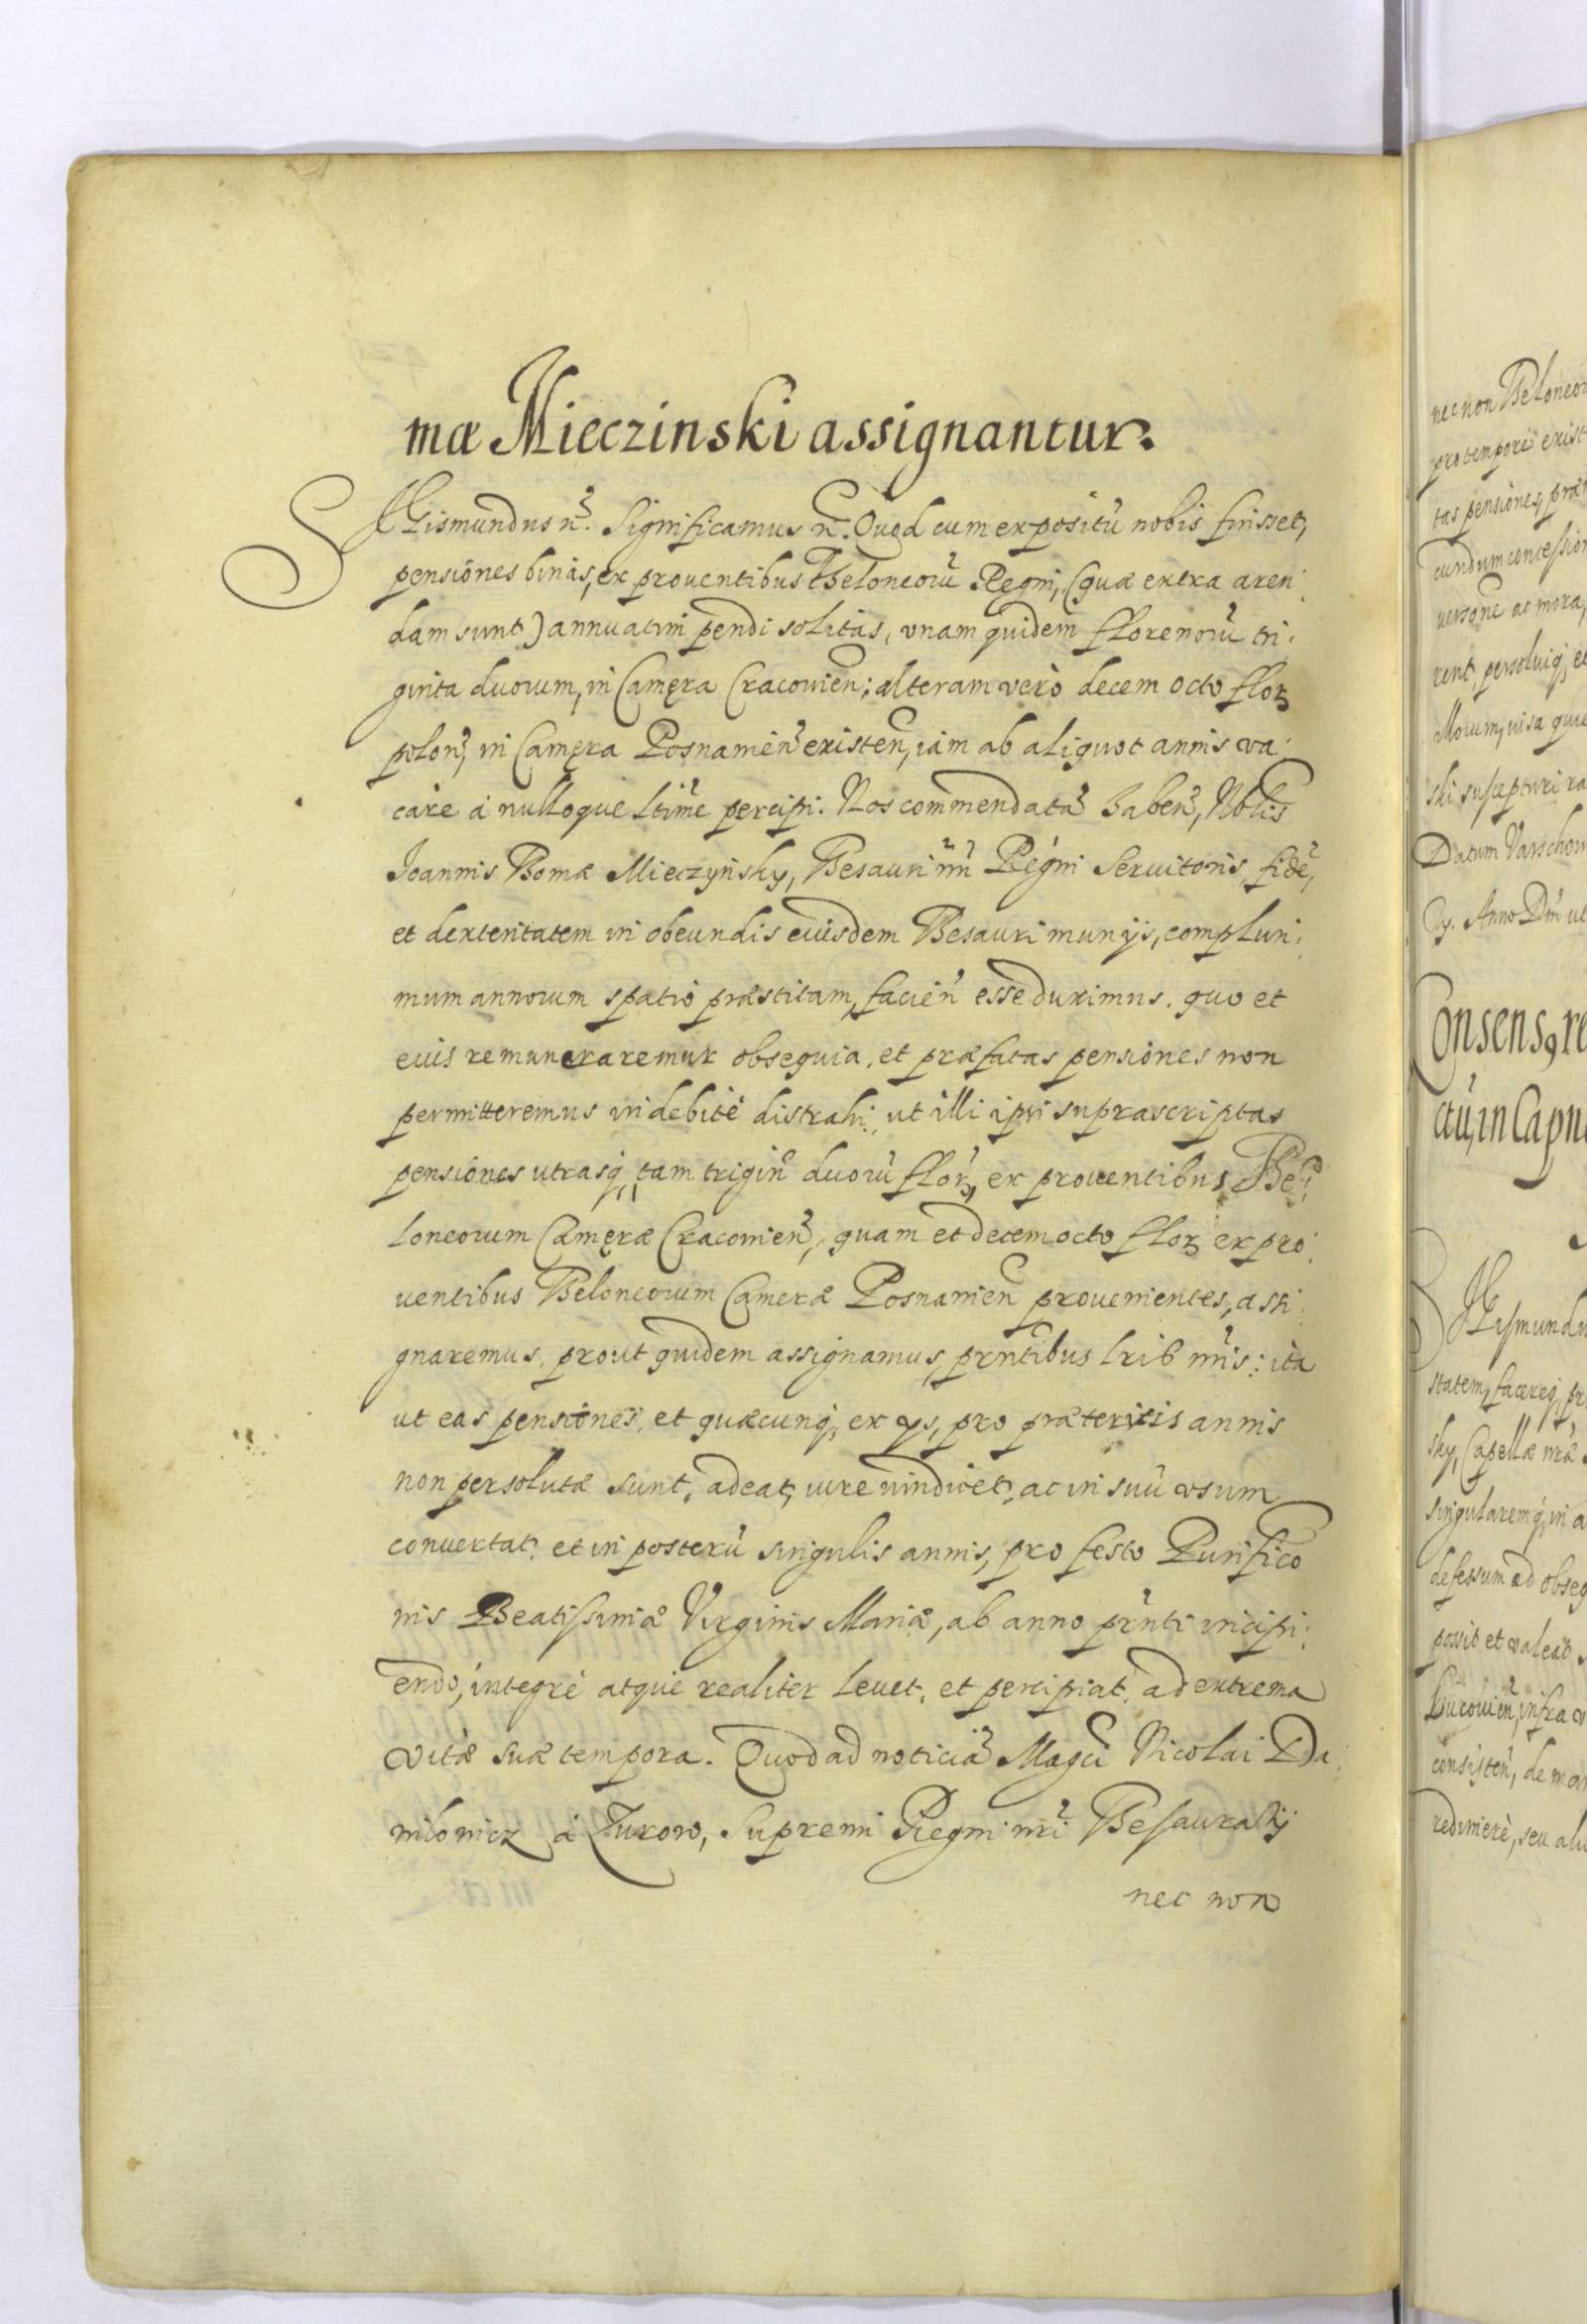 mæ Mieczinski assignantur.
SIGismundus n̄. Significamus n̄. Quod cum expositū nobis fuisset,
pensiones binas, ex prouentibus Theloneorū Regni, (quæ extra aren
dam sunt) annuatim pendi solitas, vnam quidem florenorū tri,
ginta duorum, in Camęra Cracouien: alteram verò decem octo flor
polon, in Camęra Posnamien existen, iam ab aliquot annis va
care à nulloque ltime percipi. Nos commendatā haben, Nblis
Joannis Thomæ Mieczyńsky, Thesauri nri Regni Seruitoris, fidē,
et dexteritatem in obeundis eiusdem Thesauri munijs, compluri,
mum annorum spatio præstitam, facien esse duximus. quo et
eius remuneraremur obsequia, et præfatas pensiones non
permitteremus indebitè distrahi, ut illi ipsi suprascriptas
pensiones utrasq, tam trigin duorū flor, ex prouentibus The
loneorum Camęræ Cracouien, quam et decem octo flor ex pro
uentibus Theloneorum Cameræ Posnanien prouenientes, assi
gnaremus, prout quidem assignamus, prntibus lrib nris: ita
ut eas pensiones, et quæcunq, ex ijs, pro præteritis annis
non persolutæ sunt, adeat, iure vindicet, ac in suū vsum
conuertat, et in posterū singulis annis, pro festo Purifico
nis Beatissimæ Virginis Mariæ, ab anno prnti incipi
endo, integrè atque realiter leuet, et percipiat, ad extrema
vitæ suæ tempora. Quod ad noticiā Magci Nicolai Da
nilowicz à Zurow, Supremi Regni nri Thesaurarij
nec non
nec non Theloneor
pro tempore exist
tas pensiones, præ
cundum concession
uersone ac mora,
rent, persoluiq, et
ski suscepturi ra
Datum Varschou
Anno Dni ut
Consensq re
ctū, in Capn
SIGismundu
statem, facereq, pr
sky, Capellæ nræ
singularemq, in a
defessum ad obseq
possit et valeat
consisten, de man
redimere, seu aliu